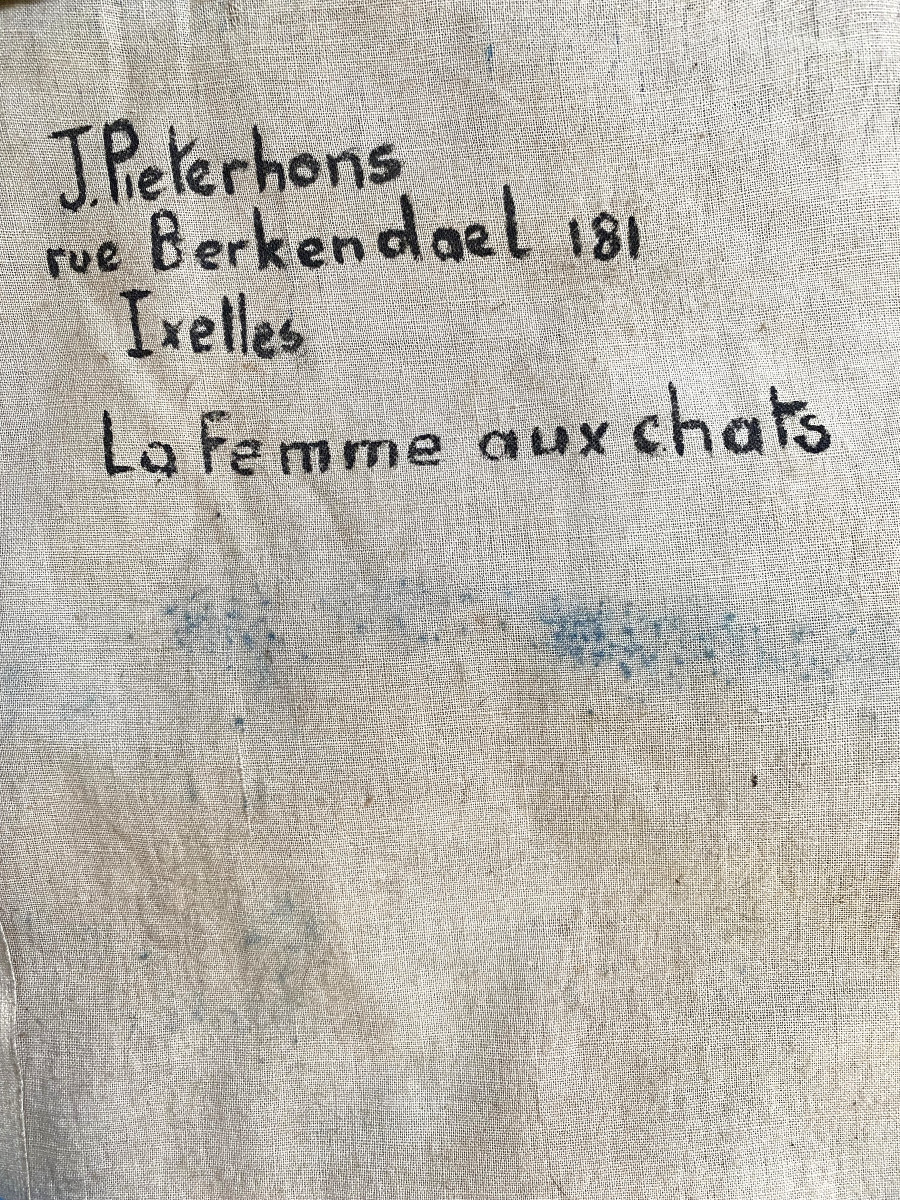 J. Pieterhons
rue Berkendael 181
Ixelles
La Femme aux chats